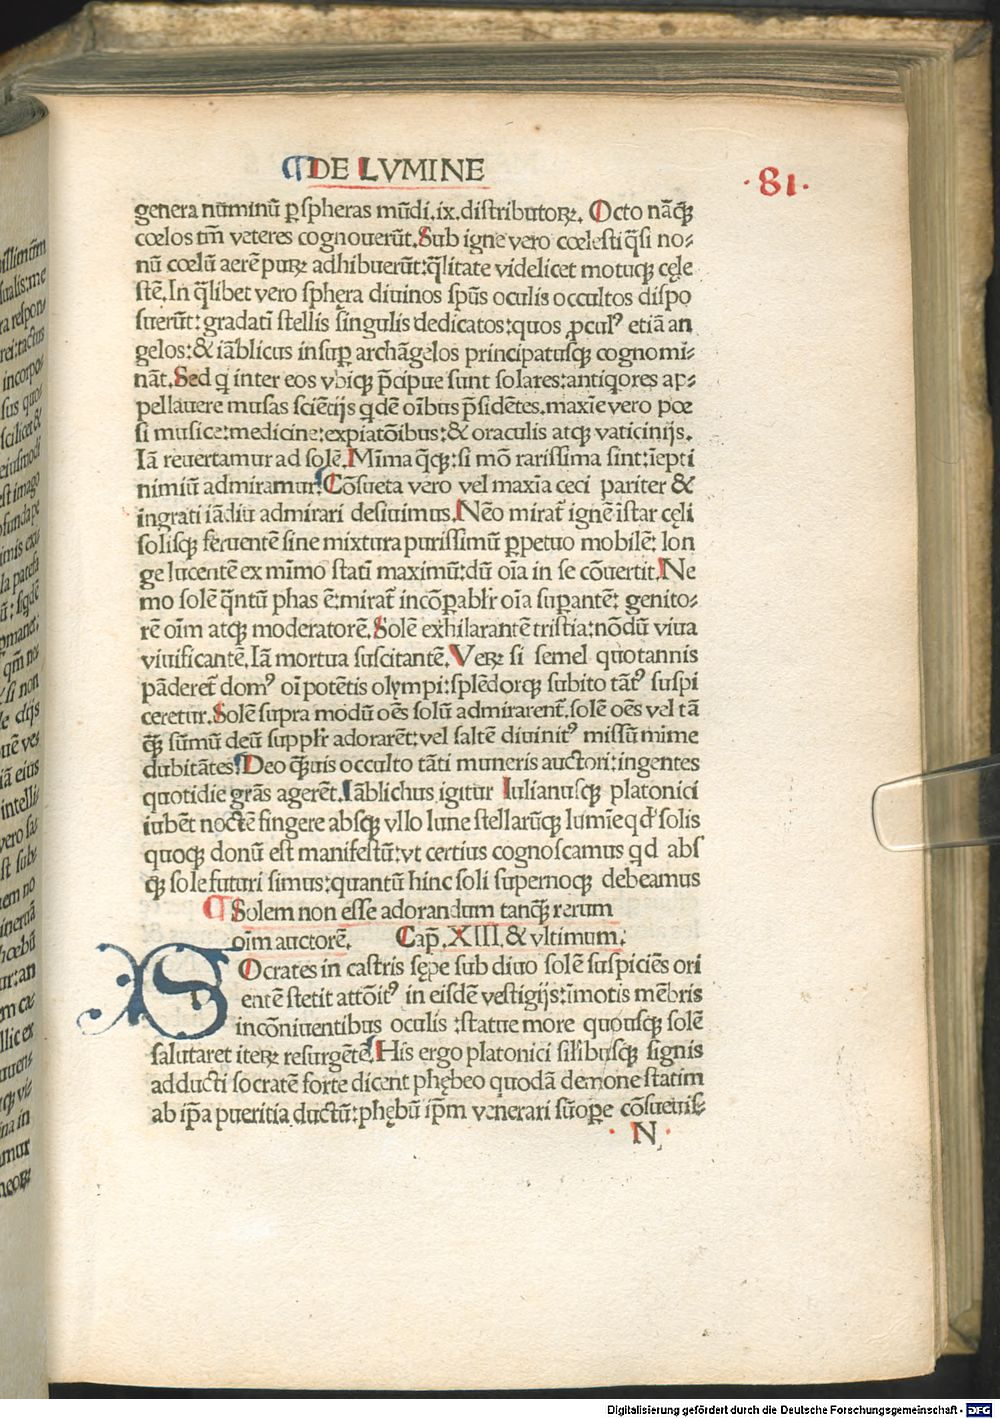 ¶DE LVMINE
·81·
genera nūminū ꝑ spheras mūdi.ix.distributoꝝ. Octo nāqꝫ
cœlos tm̄ veteres cognouerūt.Sub igne vero cœlesti q̄si no⸗
nū cœlū aerē puꝝ adhibuerūt:q̄litate videlicet motuqꝫ cęle
stē.In q̄libet vero sphęra diuinos spūs oculis occultos dispo
suerūt:gradatī stellis singulis dedicatos:quos ꝓculꝰ etiā an
gelos:& iāblicus insuꝑ archāgelos principatusqꝫ cognomi⸗
nāt.Sed q inter eos vbiqꝫ p̄cipue sunt solares:antiqores ap⸗
pellauere musas sciētijs qdē oībus p̄sidētes.maxīe vero poe
si musice:medicine:expiatōibus:& oraculis atqꝫ vaticinijs.
Iā reuertamur ad solē.Mīma q̄qꝫ:si mō rarissima sint:īepti
nimiū admiramur:Cōsueta vero vel maxīa ceci pariter &
ingrati iādiu admirari desiuimus.Nēo mirat᷑ ignē īstar cęli
solisqꝫ feruentē sine mixtura purissimū ꝑpetuo mobilē: lon
ge lucentē ex mīmo statī maximū:dū oīa in se cōuertit.Ne
mo solē q̄ntū phas ē:mirat᷑ incōꝑablr̄ oīa suꝑantē: genito⸗
rē oīm atqꝫ moderatorē.Solē exhilarantē tristia:nōdū viua
viuificantē.Iā mortua suscitantē.Veꝝ si semel quotannis
pāderet᷑ domꝰ oīpotētis olympi:splēdorqꝫ subito tātꝰ suspi
ceretur.Solē supra modū oēs solū admirarent᷑.solē oēs vel tā
q̄qꝫ sūmū deū supplr̄ adorarēt:vel saltē diuinitꝰ missū mime
dubitātes!Deo q̄uis occulto tāti muneris auctori:ingentes
quotidie grās agerēt.Iāblichus igitur Iulianusqꝫ platonici
iubēt noctē fingere absqꝫ vllo lune stellarūqꝫ lumīe qd̄ solis
quoqꝫ donū est manifestū:vt certius cognoscamus qd abs
qꝫ sole futuri simus:quantū hinc soli supernoqꝫ debeamus
¶Solem non esse adorandum tanq̄ rerum
oīm auctorē. Cap̄.XIII.& vltimum.
SOcrates in castris sępe sub diuo solē suspiciēs ori
entē stetit attōitꝰ in eisdē vestigijs:īmotis mēbris
incōniuentibus oculis :statue more quousqꝫ solē
salutaret iteꝝ resurgētē.His ergo platonici sil̄ibusqꝫ signis
adducti socratē forte dicent phębeo quodā demone statim
ab ip̄a pueritia ductū:phębū ip̄m venerari sūoꝑe cōsueuis⸗
N
Digitalisierung gefördert durch die Deutsche Forschungsgemeinschaft - DFG